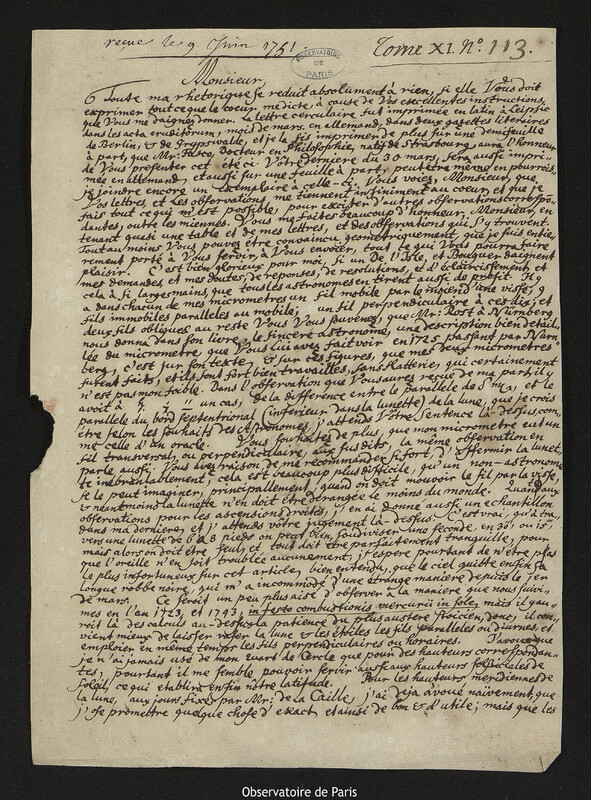 reçue le 9 Juin 1751.
Tome XI. N.º 113.
OBSERVATOIRE DE PARIS
Monsieur,
Toute ma rhetorique se reduit absolument à rien, si elle Vous doit
exprimer tout ce que le coeur me dicte, à cause de Vos excellentes instructions,
que Vous me daignez donner. La lettre cerculaire fut imprimée en latin à Leipsic
dans les acta eruditorum, mois de mars, en allemand, dans deux gazettes literaires
de Berlin, & de Grypswalde, et je la fis imprimer de plus sur une demifeuille
à part, que Mr: Fasco, Docteur en Philosophie, natif de Strasbourg aura l'honneur
de Vous presenter cet été ici. Vôtre derniere du 30 mars, sera aussi impri-
mée en allemand, et aussi sur une feuille à part, peutetre même en pourrois
je joindre encore un exemplaire à celle-ci. Vous voiés, Monsieur, que
Vos lettres, et les observations, me tiennent infiniment au coeur, et que je
fais tout ce qui m'est possible, pour exciter d'autres observations correspo-
dantes, outre les miennes. Vous me faites beaucoup d'honneur, Monsieur, en
tenant quasi une table et de mes lettres, et des observations qui s'y trouvent.
Tout au moins Vous pouvés être convaincu, geometriquement, que je suis entie-
rement porté à Vous servir, à Vous envoier, tout ce qui Vous pourra faire
plaisir. C'est bien glorieux pour moi, si un De l'Isle, et Bouguer daignent
mes demandes, et mes doutes, de reponses, de resolutions, et d'éclaircissement, et
cela à si larges mains, que tous les astronomes en tirent aussi de profit. Il y
a dans chacun de mes micrometres un fil mobile par le moien d'une visse, 9
fils immobiles paralleles au mobile, un fil perpendiculaire à ces dix, et
deux fils obliques. au reste Vous Vous pavenez, que Mr: Rost à Nürnberg
nous donna dans son livre, le sincere astronome, une description bien detail-
lée du micrometre, que Vous lui aves fait voir en 1725 passant par Nurn
berg, c'est sur son texte & sur ces figures, que mes deux micrometres
furent faits, et ils sont fort bien travaillés, sans flatterie, qui certainement
n'est pas mon foible. Dans l'observation que Vous aures reçue de ma part il y
avoit un cas, de la difference entre le parallele de et le
parallele du bord septentrional (inferieur dans la lunette) de la lune, que je crois
être selon les souhaits des Astronomes, j'attend Vôtre Sentence là-dessus, com-
me celle d'un oracle. Vous souhaités de plus, que mon micrometre eut un
fil transversal, ou perpendiculaire, aux susdits, la même observation en
parle aussi. Vous aves raison de me recommander si fort, d'affermir la lunet-
te inebranlablement, cela est beaucoup plus difficile, qu'un non-astronome
se le peut imaginer, principalement, quand on doit mouvoir le fil par la visse,
& neantmoins la lunette n'en doit être derangée le moins du monde. Quand aux
observations pour les ascensions droites, j'en ai donné aussi un echantillon
dans ma derniere, et j'attends votre jugement là-dessus. C'est vrai, qu'à tra-
vers une lunette de 6 à 8 pieds on peut bien, soudiviser une seconde, en 30, ou 15,
mais alors on doit être seul, et tout doit être parfaitement tranquille, pour
que l'oreille n'en soit troublée aucunement, j'espere pourtant de n'être plas
le plus infortuné sur cet article, bien entendu, que le ciel quitte enfin sa
longue robbe noire, qui m'a incommodé d'une etrange maniere depuis le 1er
de mars. Ce seroit un peu plus aisé d'observer à la maniere que nous suivi-
mes en l'an 1723, et 1743, in ferto combustionis mercurii in sole, mais il y au-
roit là des calculs au-dessus la patience du plus austere stoicien, donc, il con-
vient mieux de laisser raser la lune & les étoiles les fils paralleles ou diurnes, et
emploier en même temps les fils perpendiculaires ou horaires. J'avoue que
je n'ai jamais usé de mon quart de Cercle que pour des hauteurs correspondan-
tes, pourtant il me semble pouvoir servir aussi aux hauteurs solsticiales de
Soleil, ce qui etablira enfin nôtre latitude. Pour les hauteurs meridiennes de
la lune, aux jours fixés par Mr: de la Caille, j'ai deja avoué naïvement, que
j'ose promettre quelque chose d'exact et ainsi de bon & d'utile; mais que les
Observatoire de Paris